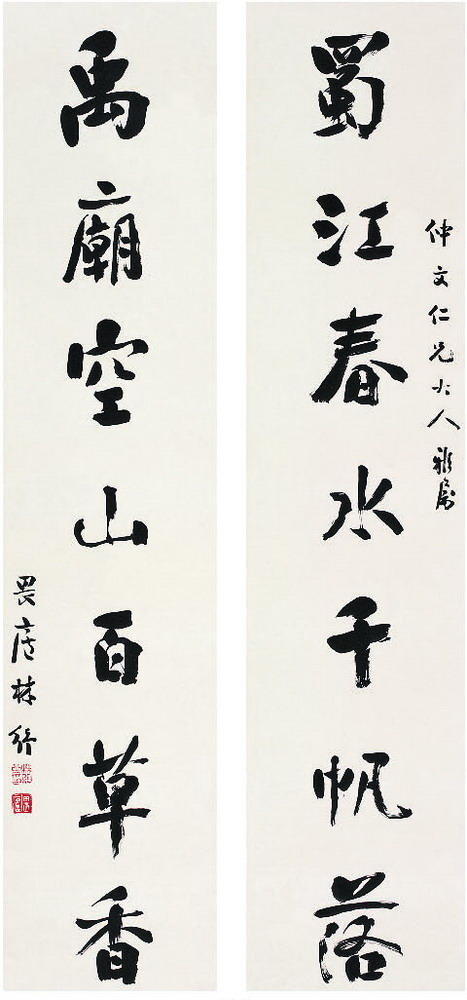 仲文仁兄大人雅属
蜀江春水千帆落
禹廟空山百草香
畏廬林紓